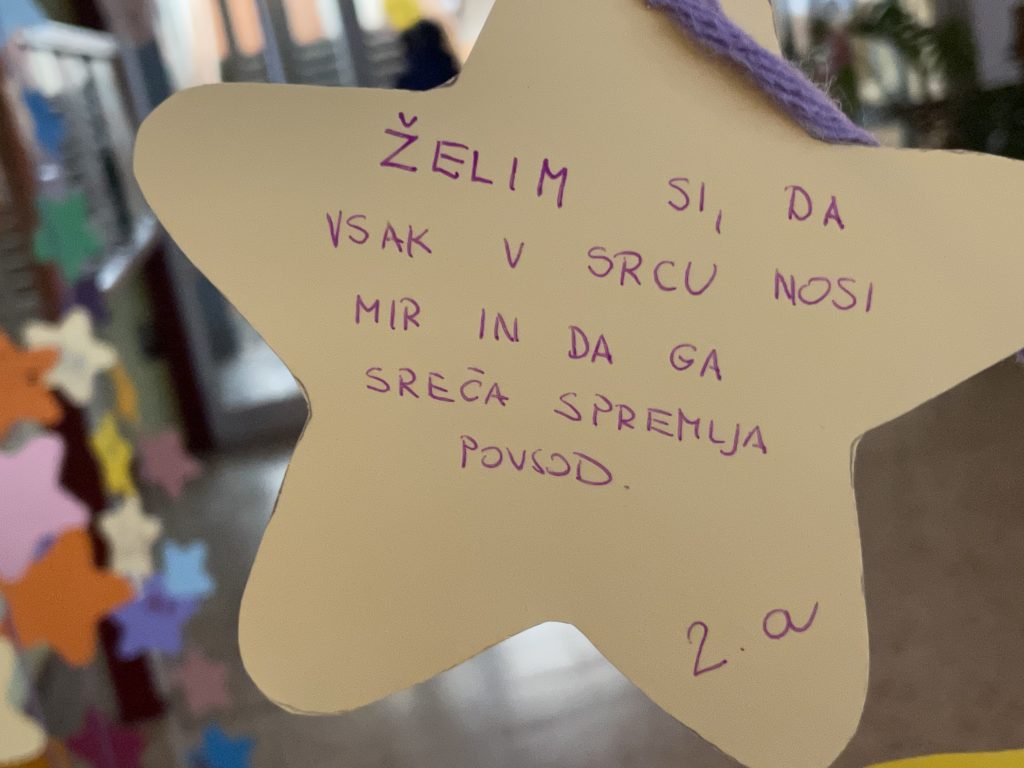 ŽELIM SI, DA
VSAK V SRCU NOSI
MIR IN DA GA
SREČA SPREMLJA
POVSOD.
2. a